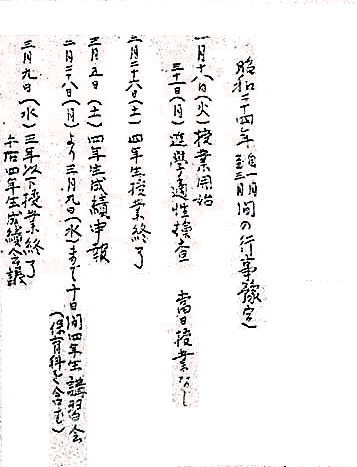 昭和二十四年自一月至三月間の行事豫定
一月十八日(火)授業開始
三十一日(月)進學適性檢查 當日授業なし
二月二十六日(土)四年生授業終了
三月五日(土)四年生成績申報
二月二十八日(月)より三月九日(水)まで十日間四年生講習会
(保育科を含む)
三月九日(水)三年以下授業終了
午后四年生成績会議